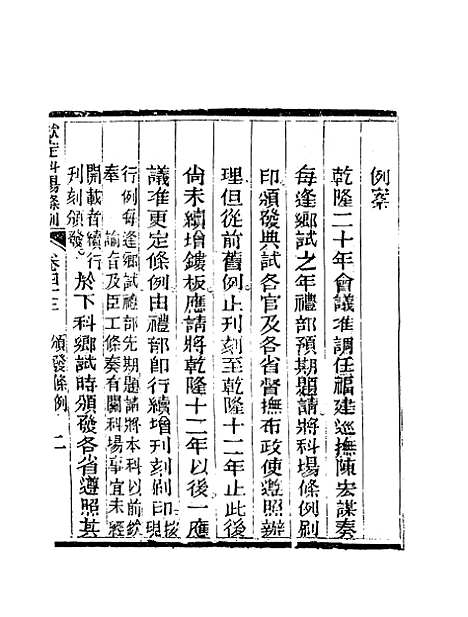 例案
乾隆二十年會議准調任福建巡撫陳宏謀奏
每逢鄉試之年禮部預期題請將科場條例刷
印頒發典試各官及各省督撫布政使遵照辦
理但從前舊例止刊刻至乾隆十二年止此後
尚未續增鏤板應請將乾隆十二年以後一應
議准更定條例由禮部即行續增刊刻刷印按現
行例每逢鄉試禮部先期題請將本科以前欽
奉 諭旨及臣工條奏有關科場事宜未經
開載者續行
刊刻頒發
於下科鄉試時頒發各省遵照其
欽定科場條例 卷四三 頒發條例 二